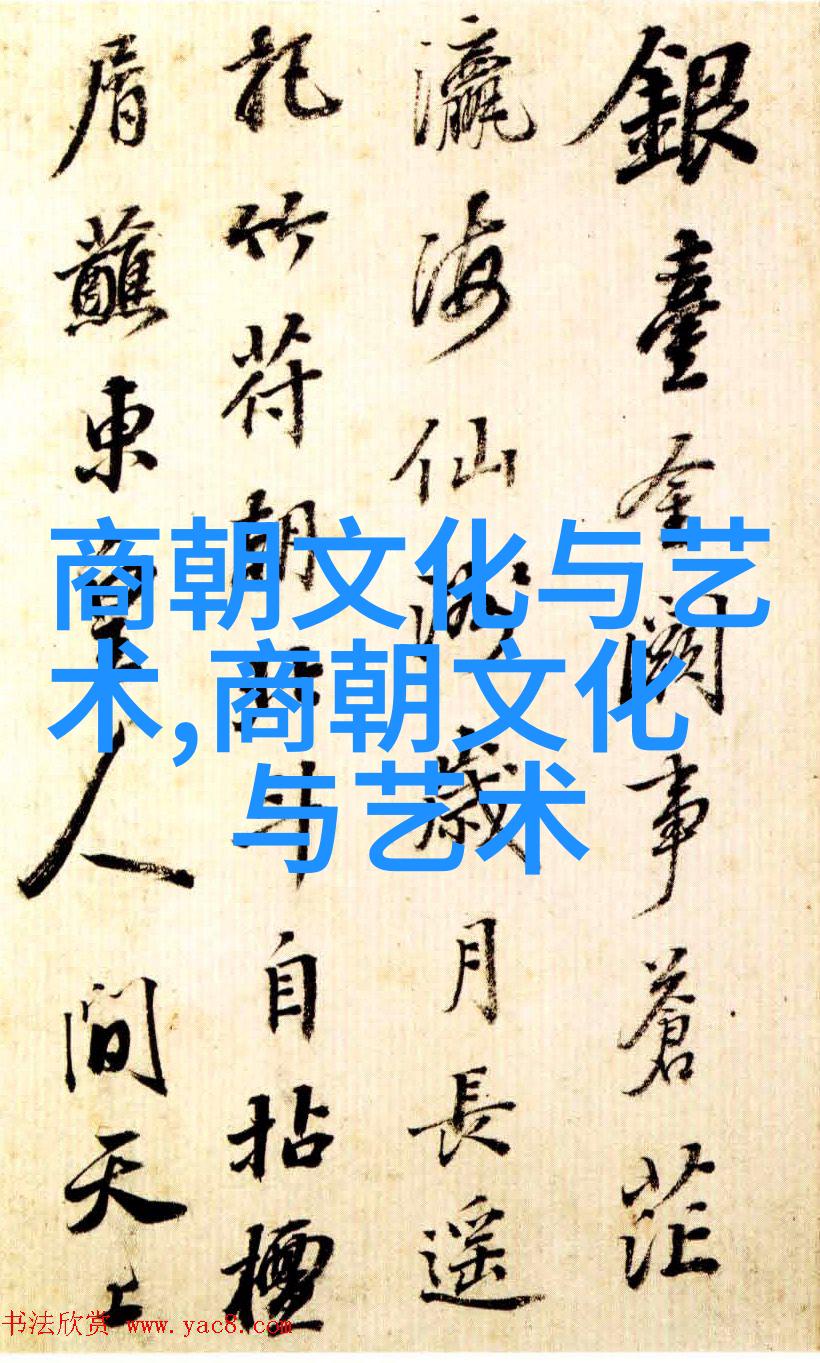 銀臺金闕事蒼茫
瀛海仙洲歲月長遥
記竹符朝斗自拈檀
屑蘸東皇人間天上
商朝文化与艺
术,商朝文化
与艺术
书法欣赏 www.yac8.com